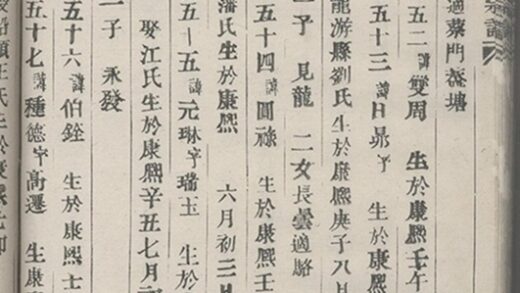 適蔡門菴塘
五二諱雙周 生於康熙壬午
五十三諱日昴字 生於康熙
龍游縣劉氏生於康熙庚子八月
一子 見龍 二女長曇適駱
五十四諱圓祿 生於康熙壬
潘氏生於康熙 六月初三
五十五諱元琳字瑞玉 生於
娶江氏生於康熙辛丑七月
一子 永發
五十六諱伯銓 生於康熙
五十七諱種德字高遷 生康
汪氏生於